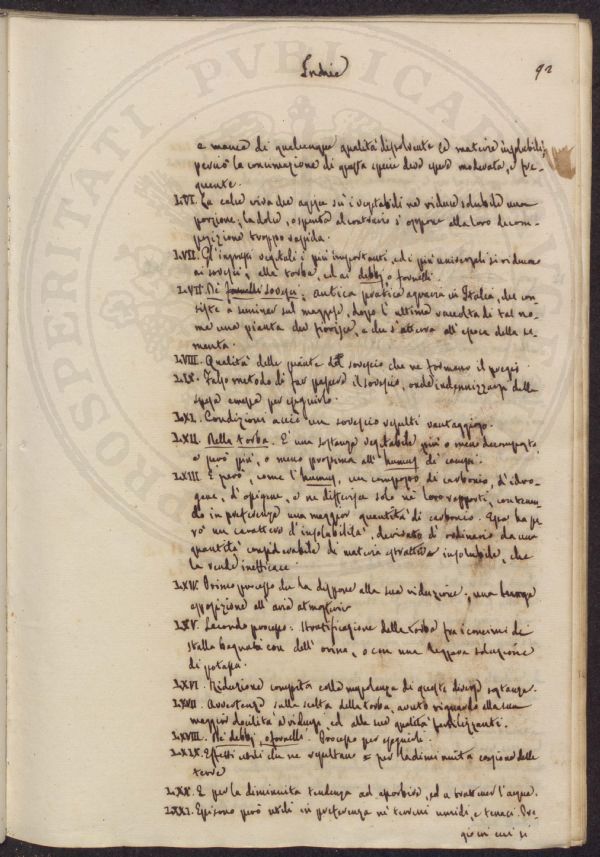 Indice 92
e manca di qualunque qualità dissolvente le materie insolubili;
perciò la concimazione di questa specie deve essere moderata, e fre-
quente.
LVI. La calce viva che agisce su' i vegetabili ne riduce solubile una
porzione; la dolce, o spenta al contrario s' oppone alla loro decom-
posizione troppo rapida.
LVII. Gl' ingrassi vegetali i più importanti, ed i più universali si riducono
ai sovesci, alla torba, ed ai debbj o fornelli.
LVII. Di fornelli sovesci; antica pratica agraria in Italia, che con-
siste a seminar sul maggese, dopo l' ultimo lavoro di tal no-
me una pianta che fiorisce, e che s' atterra all' epoca della se-
menta.
LVIII. Qualità delle piante del sovescio che ne formano il pregio
LIX. Falso metodo di far pascere il sovescio, onde indennizzarsi della
spesa emessa per eseguirlo.
LXI. Condizioni acciò un sovescio risulti vantaggioso.
LXII. Nella torba. E' una sostanza vegetabile più o meno decomposta
e però più, o meno prossima all' humus di campi.
LXIII. E però, come l' humus, un composto di carbonio, d' idro-
gene, d' ossigene, e ne differisce solo ne' loro rapporti, contenen-
do in preferenza una maggior quantità di carbonio. Essa ha pe-
rò un carattere d' insolubilità, derivato d' ordinario da una
quantità considerabile di materia estrattiva insolubile, che
la rende inefficace.
LXIV. Primo processo che la dispone alla sua riduzione; una lunga
esposizione all' aria atmosferica
LXV. Secondo processo: stratificazione della torba fra i concimi di
stalla bagnati con dell' orina, o con una leggera soluzione
di potassa.
LXVI. Riduzione compita colla mescolanza di queste diverse sostanze.
LXVII. Avvertenze sulla scelta della torba, avuto riguardo alla sua
maggior docilità a ridursi, ed alle sue qualità fertilizzanti.
LXVIII. Dei debbj, o fornelli. Processo per eseguirli.
LXIX. Effetti utili che ne resultano = per la diminuita coesione delle
terre
LXX. E per la diminuita tendenza ad assorbire, ed a trattener l' acqua.
LXXI. Essi sono però utili in preferenza ne' terreni umidi, e tenaci. Pre-
gio in cui si
PROSPERITATI PVBLICAE